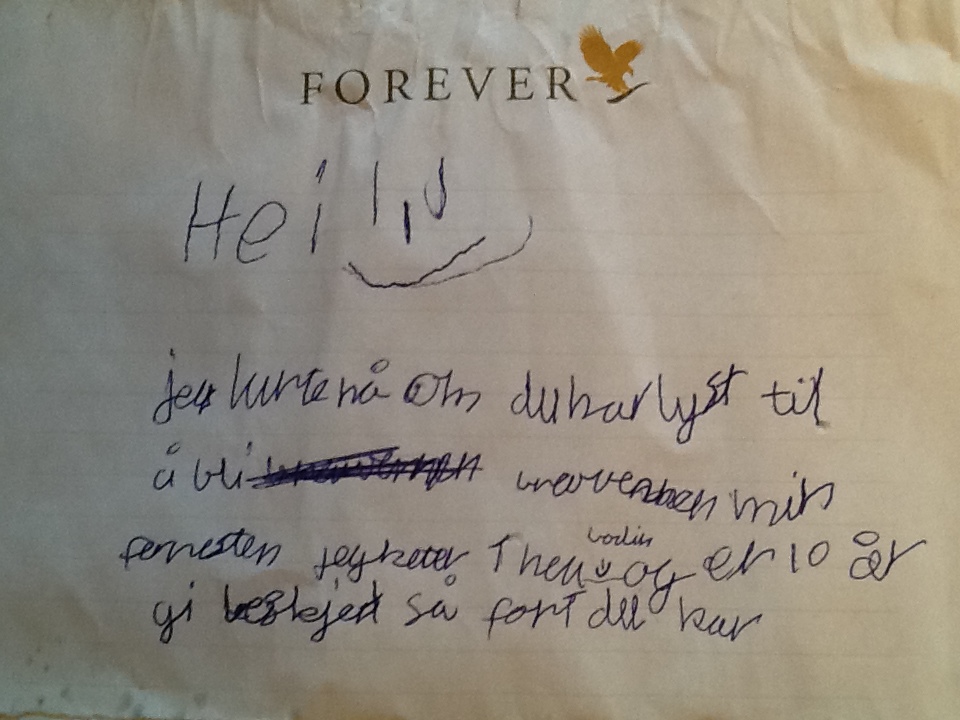 FOREVER
Hei
jeg lurte på om du har lyst til
å bli brevvennen min
forresten jeg heter Thea og er 10 år
gi beskjed så fort du kan